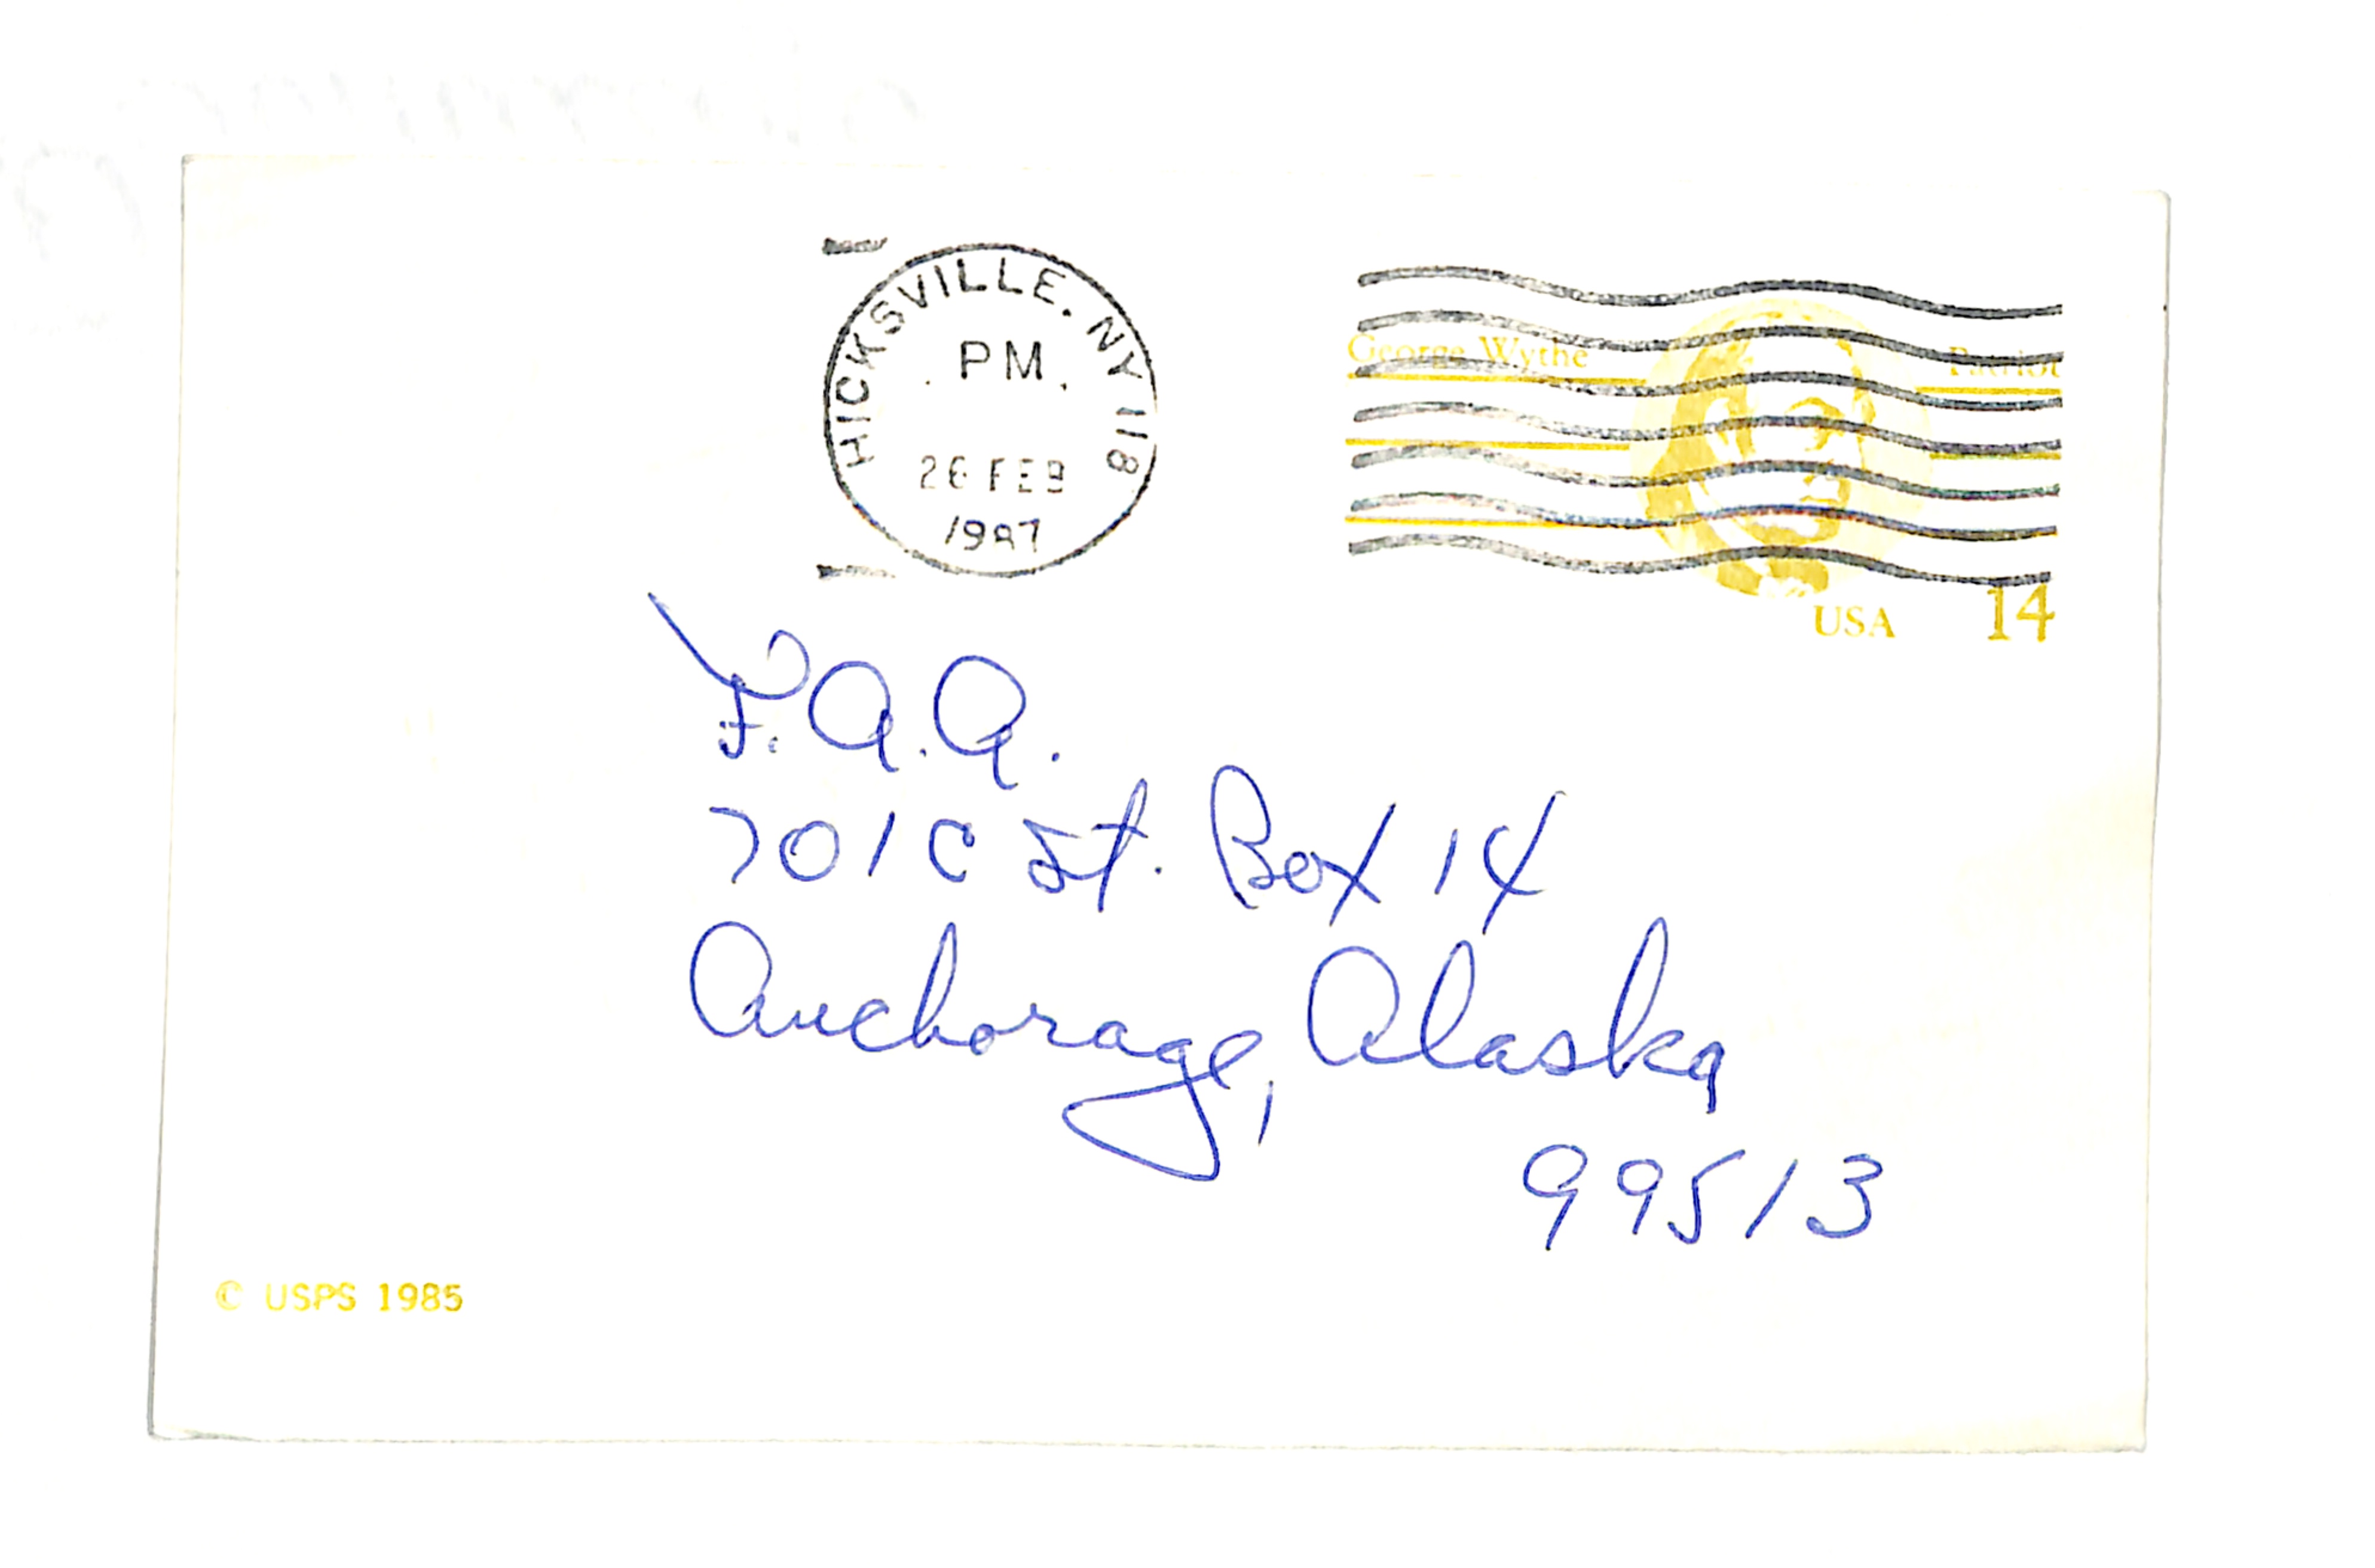 HICKSVILLE. NY 118
PM
26 FEB
1987
George Wythe
Patriot
USA 14
F.A.A.
701 C St. Box 14
Anchorage, Alaska
99513
© USPS 1985